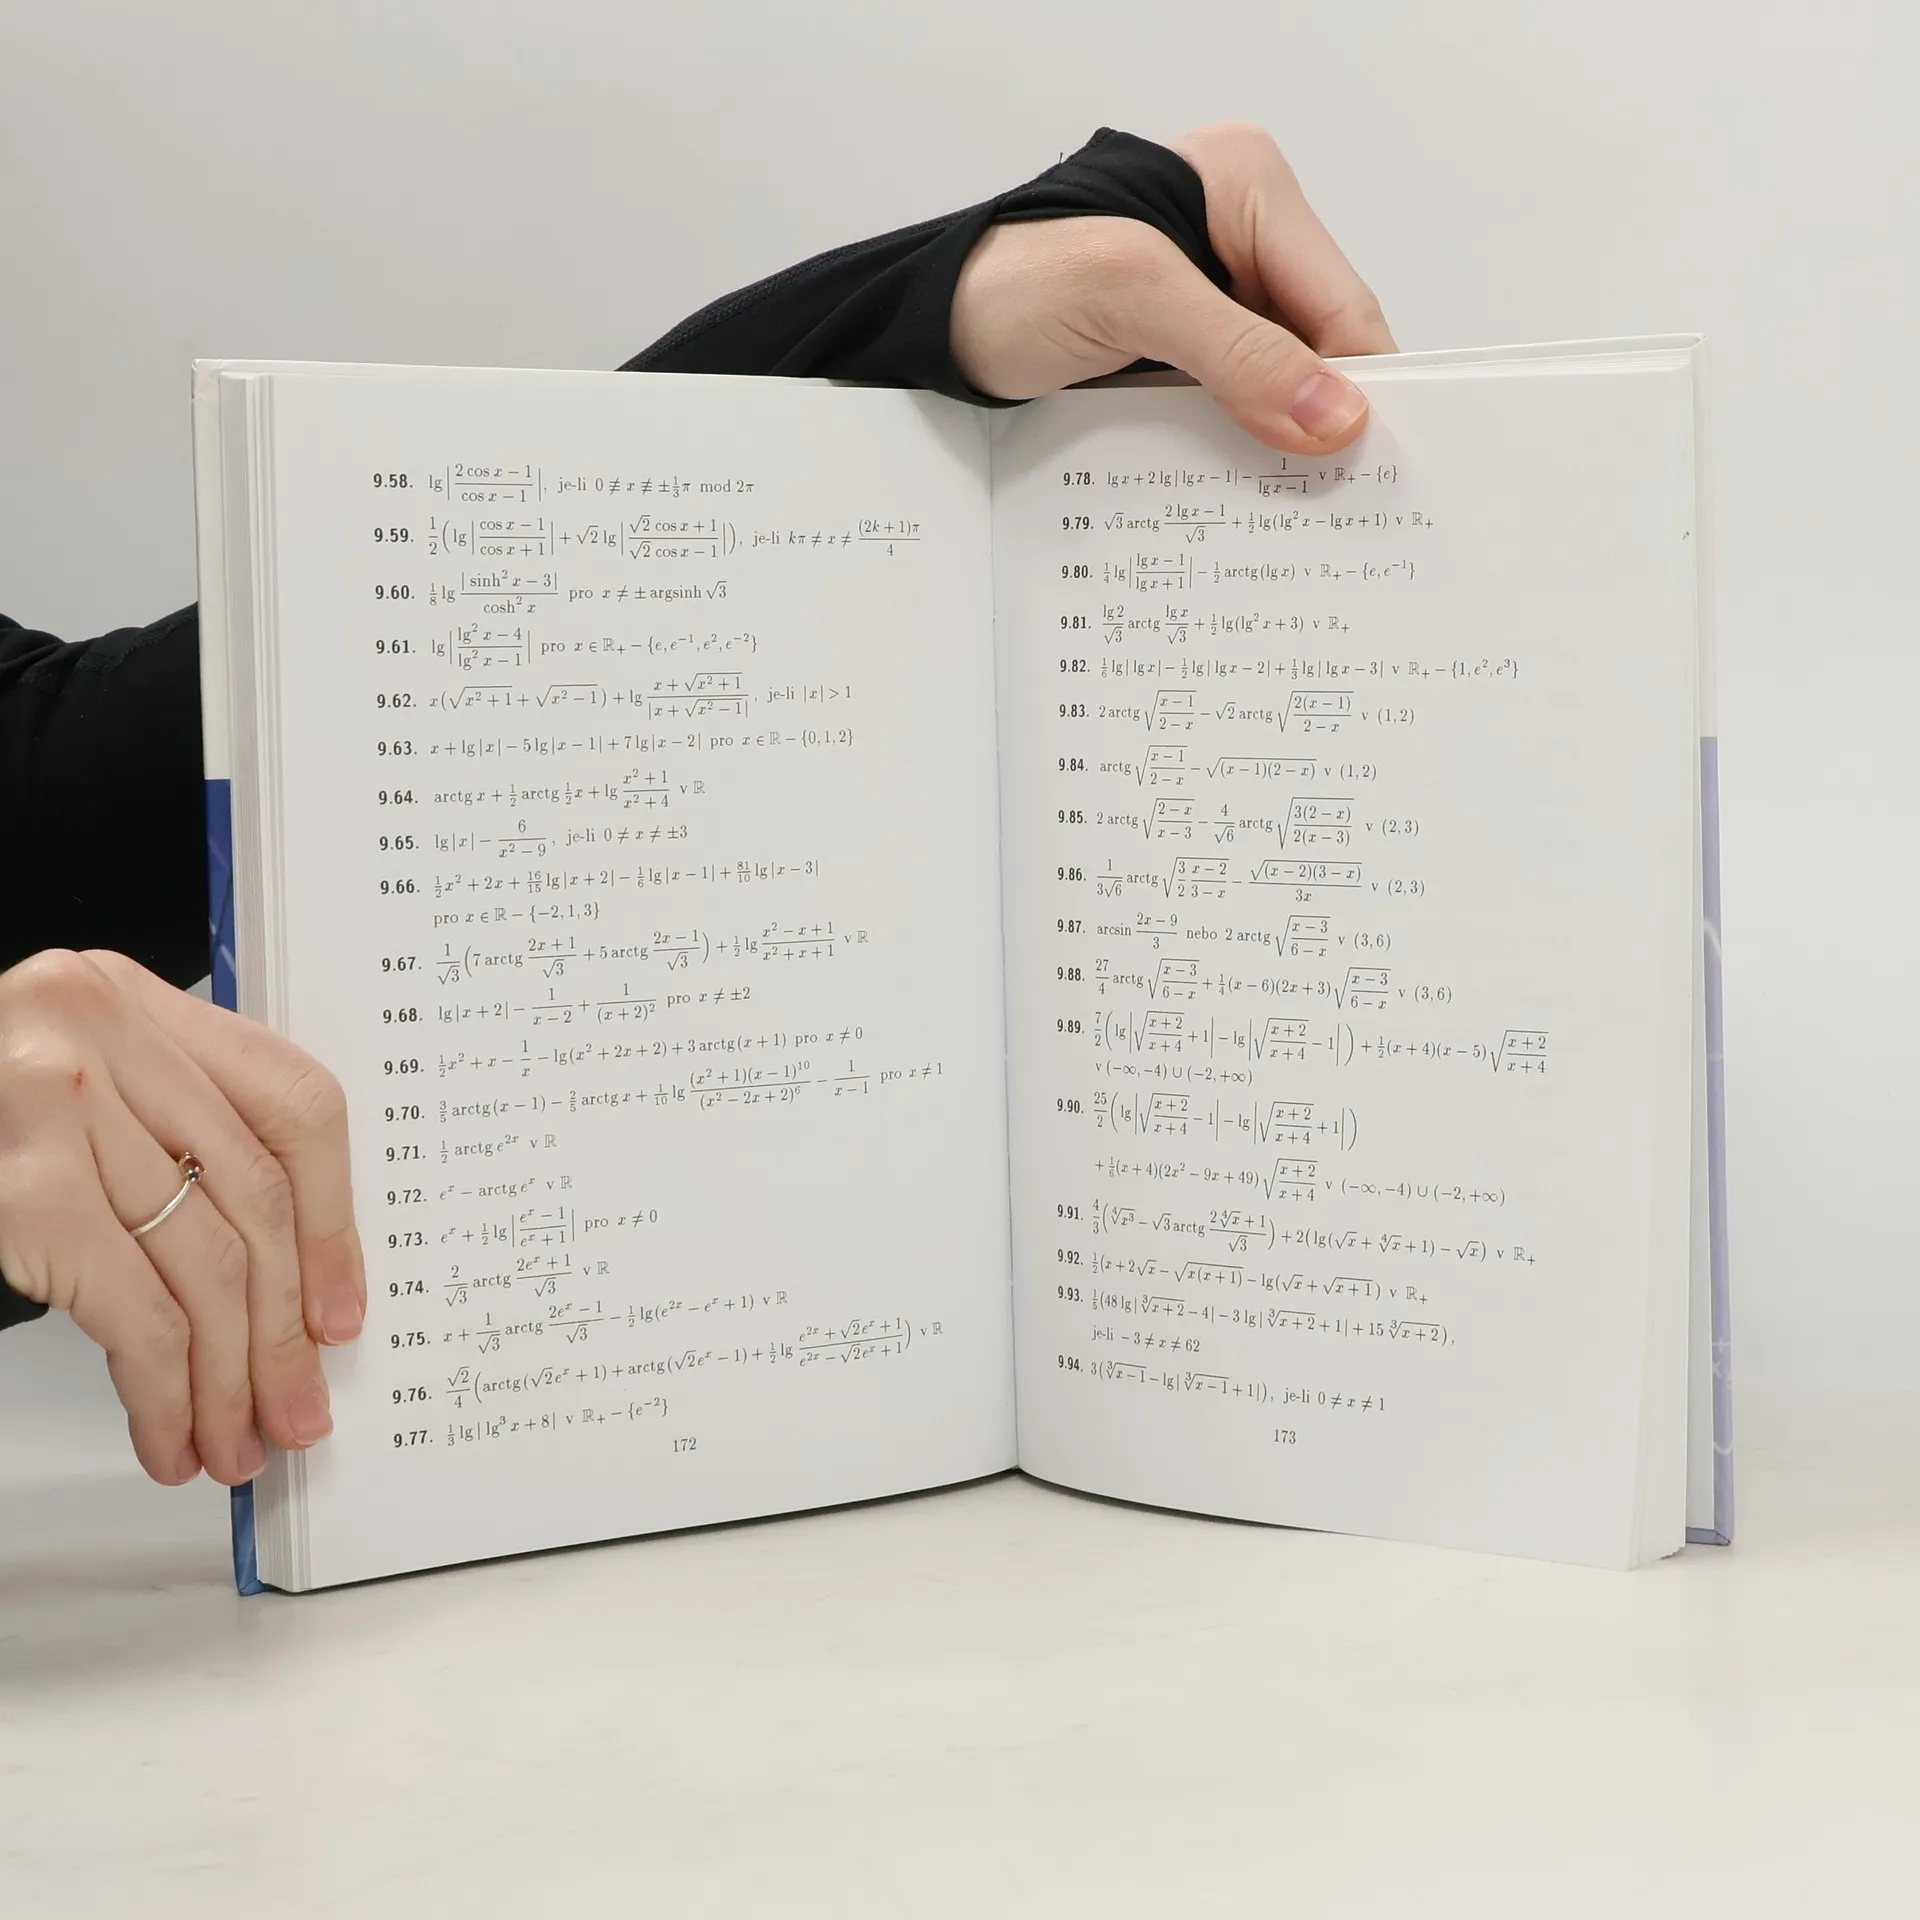 9.58. lg|(2 cos x − 1)/(cos x − 1)|, je-li 0 ≢ x ≢ ±⅓π mod 2π
9.59. 1/2(lg|(cos x − 1)/(cos x + 1)| + √2 lg|(√2 cos x + 1)/(√2 cos x − 1)|), je-li kπ ≠ x ≠ (2k + 1)π/4
9.60. ⅛ lg |sinh² x − 3|/cosh² x pro x ≠ ± argsinh √3
9.61. lg|(lg² x − 4)/(lg² x − 1)| pro x ∈ ℝ₊ − {e, e⁻¹, e², e⁻²}
9.62. x(√(x² + 1) + √(x² − 1)) + lg (x + √(x² + 1))/|x + √(x² − 1)|, je-li |x| > 1
9.63. x + lg|x| − 5 lg|x − 1| + 7 lg|x − 2| pro x ∈ ℝ − {0, 1, 2}
9.64. arctg x + ½ arctg ½x + lg (x² + 1)/(x² + 4) v ℝ
9.65. lg|x| − 6/(x² − 9), je-li 0 ≠ x ≠ ±3
9.66. ½x² + 2x + 16/15 lg|x + 2| − ⅙ lg|x − 1| + 81/10 lg|x − 3|
pro x ∈ ℝ − {−2, 1, 3}
9.67. 1/√3 (7 arctg (2x + 1)/√3 + 5 arctg (2x − 1)/√3) + ½ lg (x² − x + 1)/(x² + x + 1) v ℝ
9.68. lg|x + 2| − 1/(x − 2) + 1/(x + 2)² pro x ≠ ±2
9.69. ½x² + x − 1/x − lg(x² + 2x + 2) + 3 arctg(x + 1) pro x ≠ 0
9.70. ⅗ arctg(x − 1) − ⅖ arctg x + 1/10 lg ((x² + 1)(x − 1)¹⁰)/(x² − 2x + 2)⁶ − 1/(x − 1) pro x ≠ 1
9.71. ½ arctg e²ˣ v ℝ
9.72. eˣ − arctg eˣ v ℝ
9.73. eˣ + ½ lg|(eˣ − 1)/(eˣ + 1)| pro x ≠ 0
9.74. 2/√3 arctg (2eˣ + 1)/√3 v ℝ
9.75. x + 1/√3 arctg (2eˣ − 1)/√3 − ½ lg(e²ˣ − eˣ + 1) v ℝ
9.76. √2/4 (arctg(√2eˣ + 1) + arctg(√2eˣ − 1) + ½ lg (e²ˣ + √2eˣ + 1)/(e²ˣ − √2eˣ + 1)) v ℝ
9.77. ⅓ lg|lg³ x + 8| v ℝ₊ − {e⁻²}
172
9.78. lg x + 2 lg|lg x − 1| − 1/(lg x − 1) v ℝ₊ − {e}
9.79. √3 arctg (2 lg x − 1)/√3 + ½ lg(lg² x − lg x + 1) v ℝ₊
9.80. ¼ lg|(lg x − 1)/(lg x + 1)| − ½ arctg(lg x) v ℝ₊ − {e, e⁻¹}
9.81. lg 2/√3 arctg lg x/√3 + ½ lg(lg² x + 3) v ℝ₊
9.82. ⅙ lg|lg x| − ½ lg|lg x − 2| + ⅓ lg|lg x − 3| v ℝ₊ − {1, e², e³}
9.83. 2 arctg √((x − 1)/(2 − x)) − √2 arctg √(2(x − 1)/(2 − x)) v (1, 2)
9.84. arctg √((x − 1)/(2 − x)) − √((x − 1)(2 − x)) v (1, 2)
9.85. 2 arctg √((2 − x)/(x − 3)) − 4/√6 arctg √(3(2 − x)/(2(x − 3))) v (2, 3)
9.86. 1/(3√6) arctg √(3/2 (x − 2)/(3 − x)) − √((x − 2)(3 − x))/(3x) v (2, 3)
9.87. arcsin (2x − 9)/3 nebo 2 arctg √((x − 3)/(6 − x)) v (3, 6)
9.88. 27/4 arctg √((x − 3)/(6 − x)) + ¼(x − 6)(2x + 3)√((x − 3)/(6 − x)) v (3, 6)
9.89. 7/2(lg|√((x + 2)/(x + 4)) + 1| − lg|√((x + 2)/(x + 4)) − 1|) + ½(x + 4)(x − 5)√((x + 2)/(x + 4))
v (−∞, −4) ∪ (−2, +∞)
9.90. 25/2(lg|√((x + 2)/(x + 4)) − 1| − lg|√((x + 2)/(x + 4)) + 1|)
+ ⅙(x + 4)(2x² − 9x + 49)√((x + 2)/(x + 4)) v (−∞, −4) ∪ (−2, +∞)
9.91. 4/3(∜x³ − √3 arctg (2∜x + 1)/√3) + 2(lg(√x + ∜x + 1) − √x) v ℝ₊
9.92. ½(x + 2√x − √(x(x + 1)) − lg(√x + √(x + 1)) v ℝ₊
9.93. ⅕(48 lg|∛(x + 2) − 4| − 3 lg|∛(x + 2) + 1| + 15 ∛(x + 2)),
je-li −3 ≠ x ≠ 62
9.94. 3(∛(x − 1) − lg|∛(x − 1) + 1|), je-li 0 ≠ x ≠ 1
173